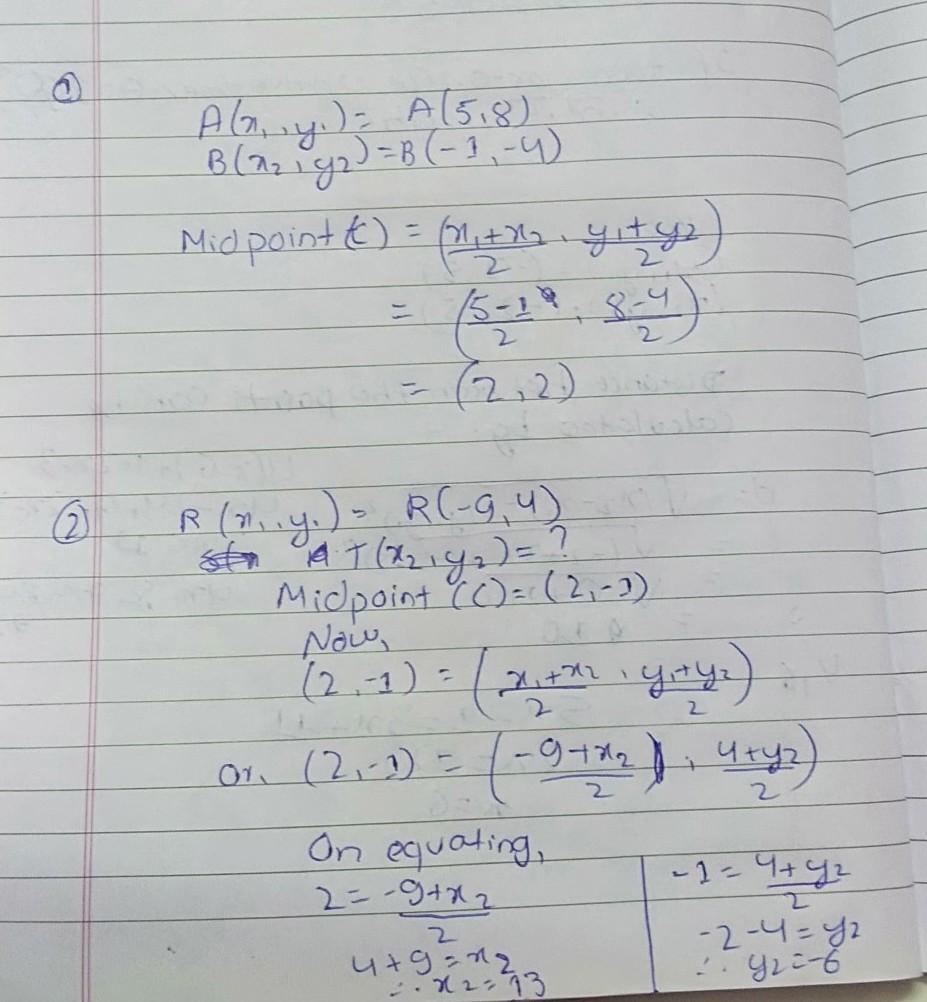 ①
A(x₁, y₁) = A(5, 8)
B(x₂, y₂) = B(-1, -4)
Midpoint (C) = (x₁+x₂/2, y₁+y₂/2)
= (5-1/2, 8-4/2)
= (2, 2)
②
R(x₁, y₁) = R(-9, 4)
T(x₂, y₂) = ?
Midpoint (C) = (2, -1)
Now,
(2, -1) = (x₁+x₂/2, y₁+y₂/2)
Or, (2, -1) = (-9+x₂/2, 4+y₂/2)
On equating,
2 = -9+x₂/2
4+9 = x₂
∴ x₂ = 13
-1 = 4+y₂/2
-2-4 = y₂
∴ y₂ = -6